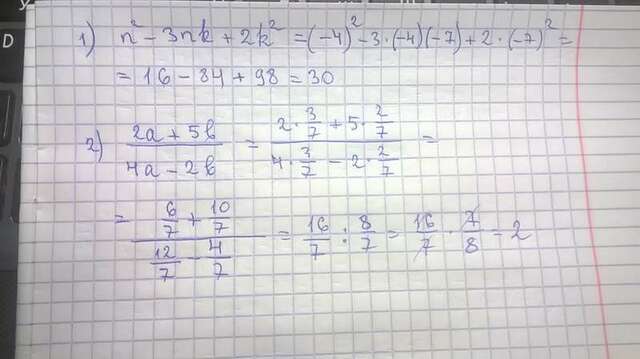 1) n² - 3nk + 2k² = (-4)² - 3·(-4)(-7) + 2·(-7)² =
= 16 - 84 + 98 = 30
2) (2a + 5b)/(4a - 2b) = (2·3/7 + 5·2/7)/(4·3/7 - 2·2/7) =
= (6/7 + 10/7)/(12/7 - 4/7) = 16/7 : 8/7 = 16/7 · 7/8 = 2